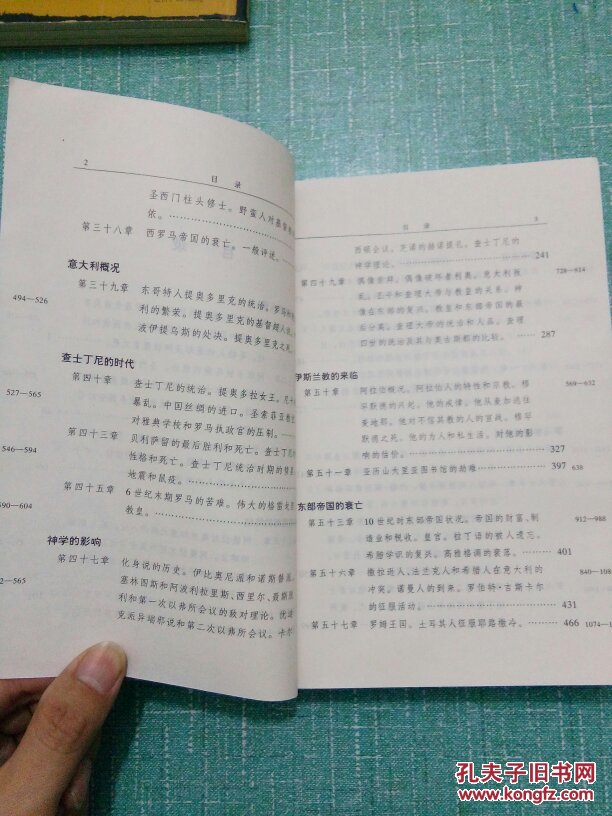 2
目 录
圣西门柱头修士。野蛮人对基督教
依。
第三十八章 西罗马帝国的衰亡。一般评述。
意大利概况
494—526 第三十九章 东哥特人提奥多里克的统治。罗马和
利的繁荣。提奥多里克的基督
波伊提乌斯的处决。提奥多里克之死。
查士丁尼的时代
527—565 第四十章 查士丁尼的统治。提奥多拉女王。尼卡
暴乱。中国丝绸的进口。圣索菲亚教
对雅典学校和罗马执政官的压制。
546—594 第四十三章 贝利萨留的最后胜利和死亡。查士丁尼
性格和死亡。查士丁尼统治时期的彗星
地震和鼠疫。
590—604 第四十五章 6世纪末期罗马的苦难。伟大的格雷戈
教皇。
神学的影响
第四十七章 化身说的历史。伊比奥尼派和诺斯替派
2—565 塞林图斯和阿波利拉里斯、西里尔、聂斯
利和第一次以弗所会议的敌对理论。优迪
克派异端邪说和第二次以弗所会议。卡尔
目 录 3
西顿会议。芝诺的赫诺提孔。查士丁尼的
神学理论。 241
第四十九章 偶像崇拜。偶像破坏者利奥。意大利叛 728—814
乱。丕平和查理大帝与教皇的关系。神
像在东部的复兴。教皇和东部帝国的最
后分离。查理大帝的统治和人品。查理
四世的统治及其与奥古斯都的比较。 287
伊斯兰教的来临
第五十章 阿拉伯概况。阿拉伯人的特性和宗教。穆 569—632
罕默德的兴起。他的戒律。他从麦加逃往
麦地那。他对不信其教的人的宣战。穆罕
默德之死。他的为人和私生活。对他的影
响的估价。 327
第五十一章 亚历山大里亚图书馆的劫难 397 638
东部帝国的衰亡
第五十三章 10世纪时东部帝国状况。帝国的财富、制 912—988
造业和税收。皇宫。拉丁语的被人遗忘。
希腊学识的复兴。高雅格调的衰落。 401
第五十六章 撒拉逊人、法兰克人和希腊人在意大利的 840—108
冲突。诺曼人的到来。罗伯特·吉斯卡尔
的征服活动。 431
第五十七章 罗姆王国。土耳其人征服耶路撒冷。 466 1074—1
孔夫子旧书网
www.kongfz.com